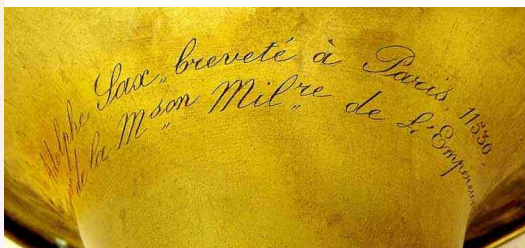 Adolphe Sax, breveté à Paris, 11530.
de la Mson Milre de L'Empereur